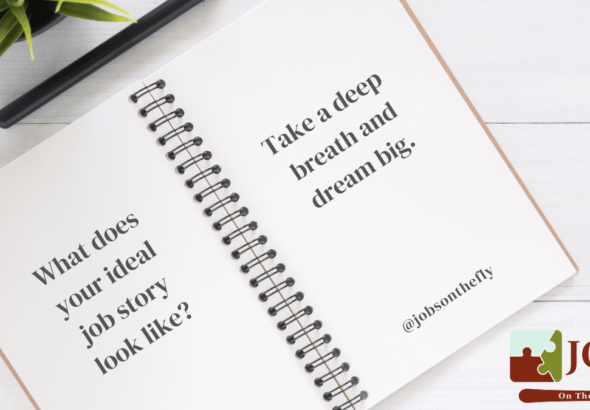 What does
your ideal
job story
look like?
Take a deep
breath and
dream big.
@jobsonthefly
On The